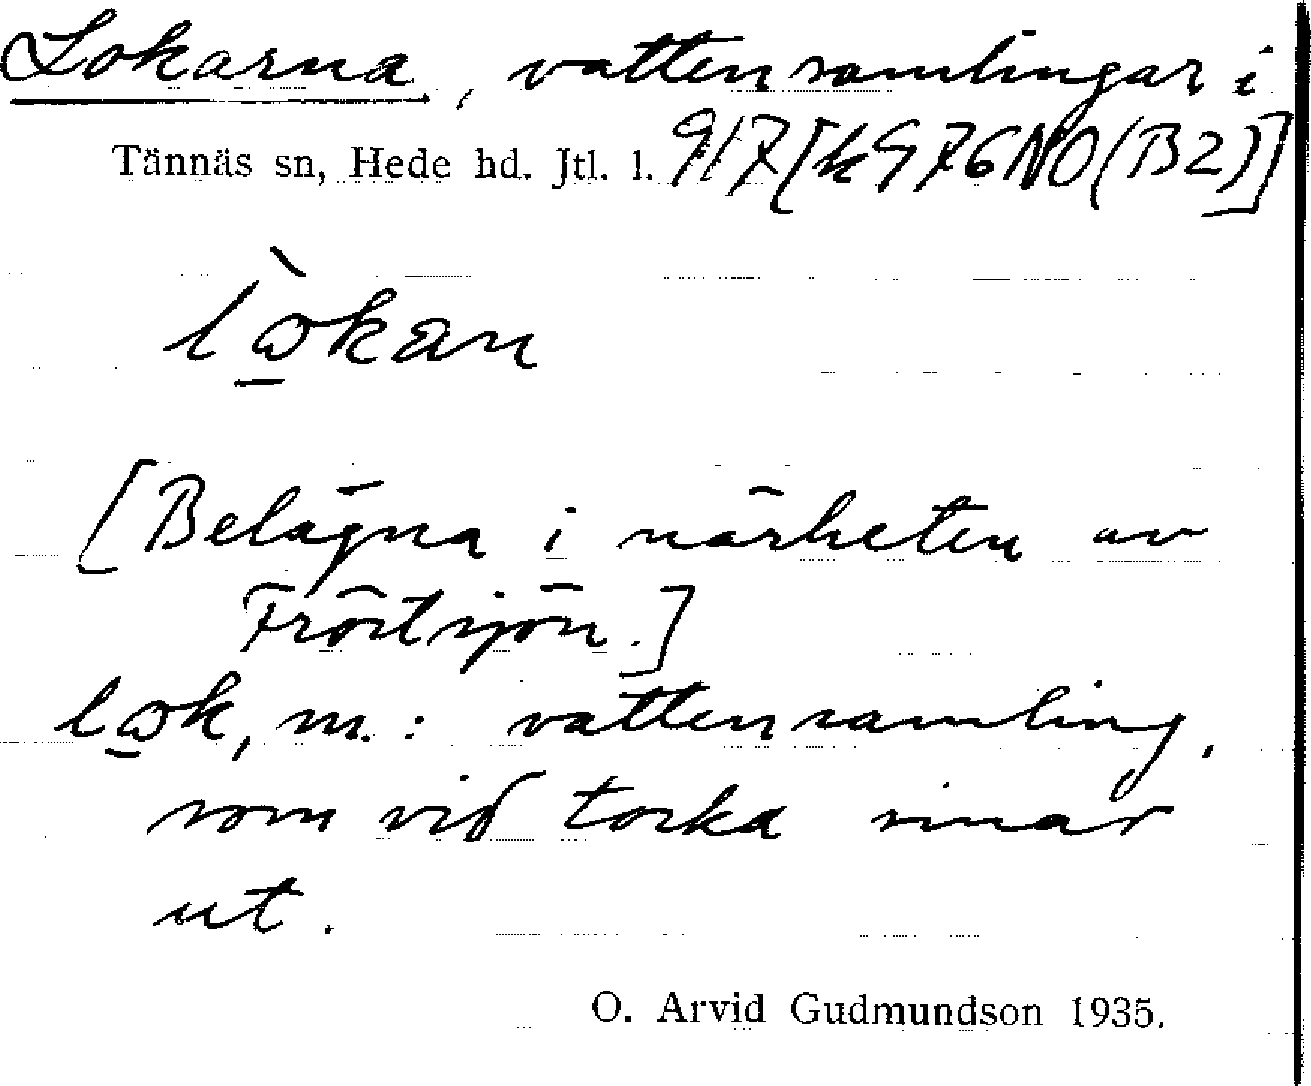 Lokarna, vattensamlingar i
Tännäs sn, Hede hd. Jtl. l. 917[k976NO(B2)]
lò̱kan
[Belägna i närheten av
Fröstsjön.]
lo̱k, m.: vattensamling,
som vid torka sinar
ut.
O. Arvid Gudmundson 1935.